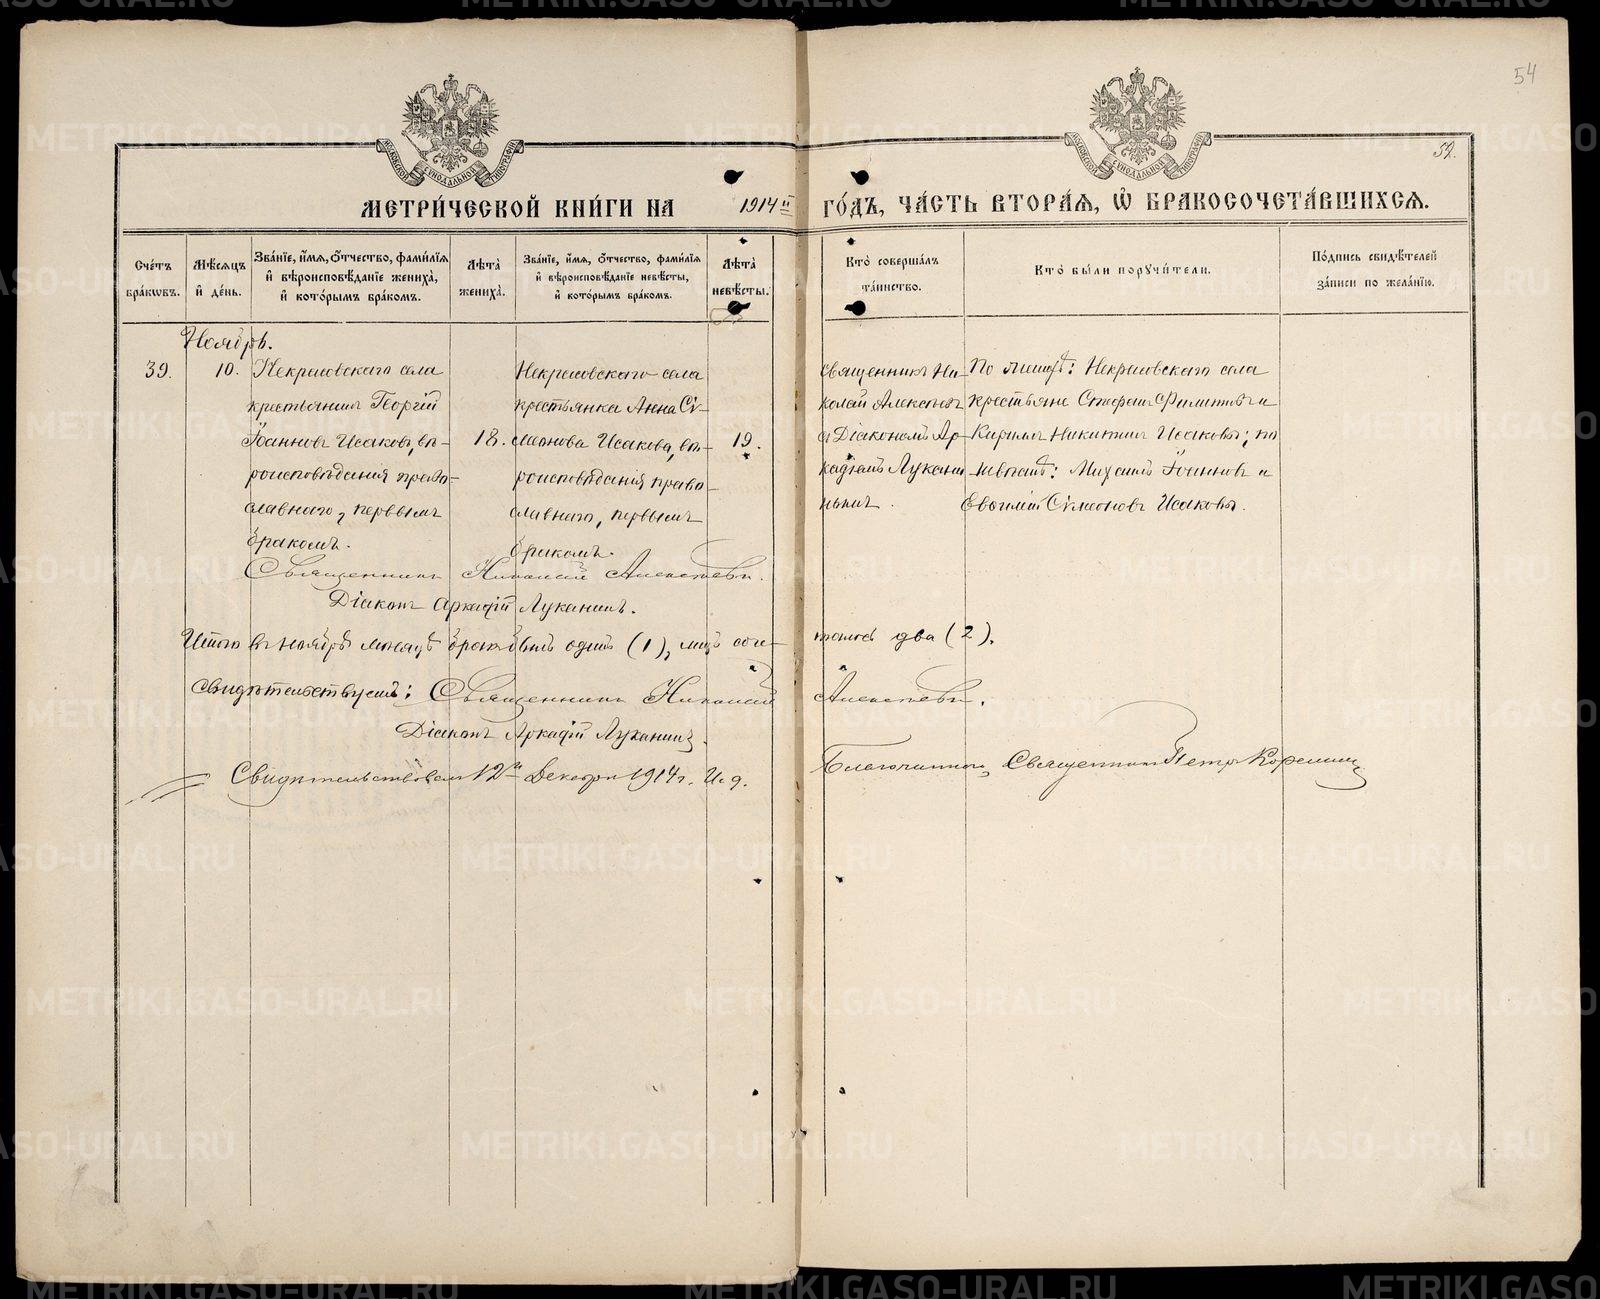 54
МОСКОВСКОЙ СѴНОДАЛЬНОЙ ТИПОГРАФІИ
МОСКОВСКОЙ СѴНОДАЛЬНОЙ ТИПОГРАФІИ
52.
МЕТРИ́ЧЕСКОЙ КНИ́ГИ НА 1914 ГО́ДЪ, ЧА́СТЬ ВТОРА́Я, Ѡ҆ БРАКОСОЧЕТА́ВШИХСЯ.
Сче́тъ бра́кѡвъ.
Мѣ́сяцъ и҆ де́нь.
Зва́нїе, и҆́мя, ѻ҆́тчество, фами́лїя и҆ вѣроисповѣ́данїе жениха̀, и҆ кото́рымъ бра́комъ.
Лѣ́та жениха̀.
Зва́нїе, и҆́мя, ѻ҆́тчество, фами́лїя и҆ вѣроисповѣ́данїе невѣ́сты, и҆ кото́рымъ бра́комъ.
Лѣ́та невѣ́сты.
Кто̀ соверша́лъ та́инство.
Кто̀ бы́ли порꙋчи́тели.
По́дпись свидѣ́телей за́писи по жела́нїю.
Ноябрь.
39.
10.
Некрасовскаго села
крестьянинъ Георгій
Іоанновъ Исаковъ, вѣ-
роисповѣданія право-
славнаго, первымъ
бракомъ.
18.
Некрасовскаго села
крестьянка Анна Си-
меонова Исакова, вѣ-
роисповѣданія право-
славнаго, первымъ
бракомъ.
19.
Священникъ Ни-
колай Алексѣевъ
съ Діакономъ Ар-
кадіемъ Лукани-
нымъ.
По женихѣ: Некрасовскаго села
крестьяне Стефанъ Филипповъ и
Кириллъ Никитинъ Исаковы; по
невѣстѣ: Михаилъ Іоанновъ и
Евѳимій Симеоновъ Исаковы.
Священникъ Николай Алексѣевъ.
Діаконъ Аркадій Луканинъ.
Итого въ ноябрѣ мѣсяцѣ браковъ былъ одинъ (1), лицъ соче- талось два (2).
Свидѣтельствуемъ: Священникъ Николай Алексѣевъ.
Діаконъ Аркадій Луканинъ.
Свидѣтельствовалъ 12 Декабря 1914 г. И. д. Благочиннаго, Священникъ Петръ